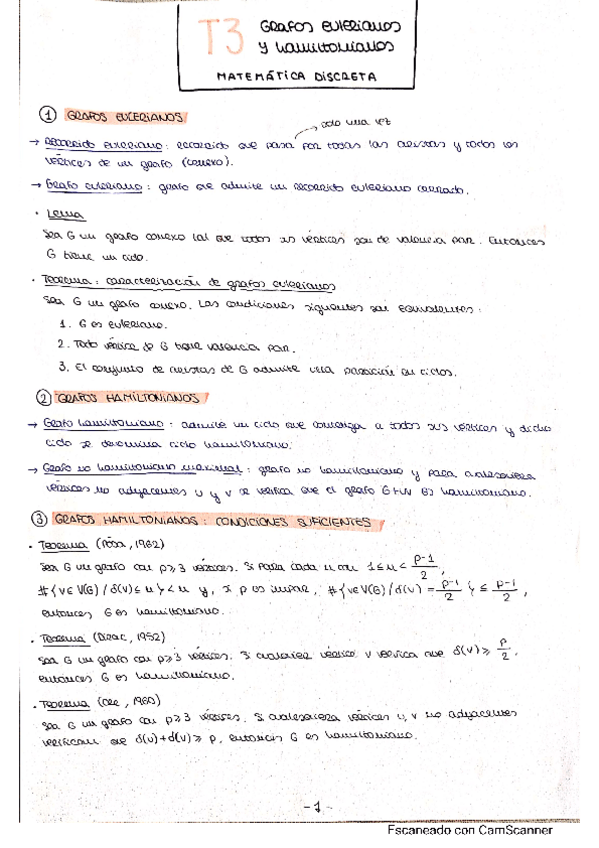 T3 GRAFOS EULERIANOS
Y HAMILTONIANOS
MATEMÁTICA DISCRETA
① GRAFOS EULERIANOS
solo una vez
→ Recorrido euleriano: recorrido que pasa por todas las aristas y todos los
vértices de un grafo (conexo).
→ Grafo euleriano: grafo que admite un recorrido euleriano cerrado.
· Lema
Sea G un grafo conexo tal que todos sus vértices son de valencia par. Entonces
G tiene un ciclo.
· Teorema: caracterización de grafos eulerianos
Sea G un grafo conexo. Las condiciones siguientes son equivalentes:
1. G es euleriano.
2. Todo vértice de G tiene valencia par.
3. El conjunto de aristas de G admite una partición en ciclos.
② GRAFOS HAMILTONIANOS
→ Grafo hamiltoniano: admite un ciclo que contenga a todos sus vértices y dicho
ciclo se denomina ciclo hamiltoniano.
→ Grafo no hamiltoniano maximal: grafo no hamiltoniano y para cualesquiera
vértices no adyacentes u y v se verifica que el grafo G+uv es hamiltoniano.
③ GRAFOS HAMILTONIANOS: CONDICIONES SUFICIENTES
· Teorema (Pósa, 1962)
Sea G un grafo con p≥3 vértices. Si para cada n con 1≤n< p-1/2,
#{v∈V(G) / δ(v)≤n}<n y, si p es impar, #{v∈V(G) / δ(v) = p-1/2} ≤ p-1/2,
entonces G es hamiltoniano.
· Teorema (Dirac, 1952)
Sea G un grafo con p≥3 vértices. Si cualquier vértice v verifica que δ(v)≥ p/2,
entonces G es hamiltoniano.
· Teorema (Ore, 1960)
Sea G un grafo con p≥3 vértices. Si cualesquiera vértices u, v no adyacentes
verifican que δ(u)+δ(v)≥p, entonces G es hamiltoniano.
-1-
Escaneado con CamScanner